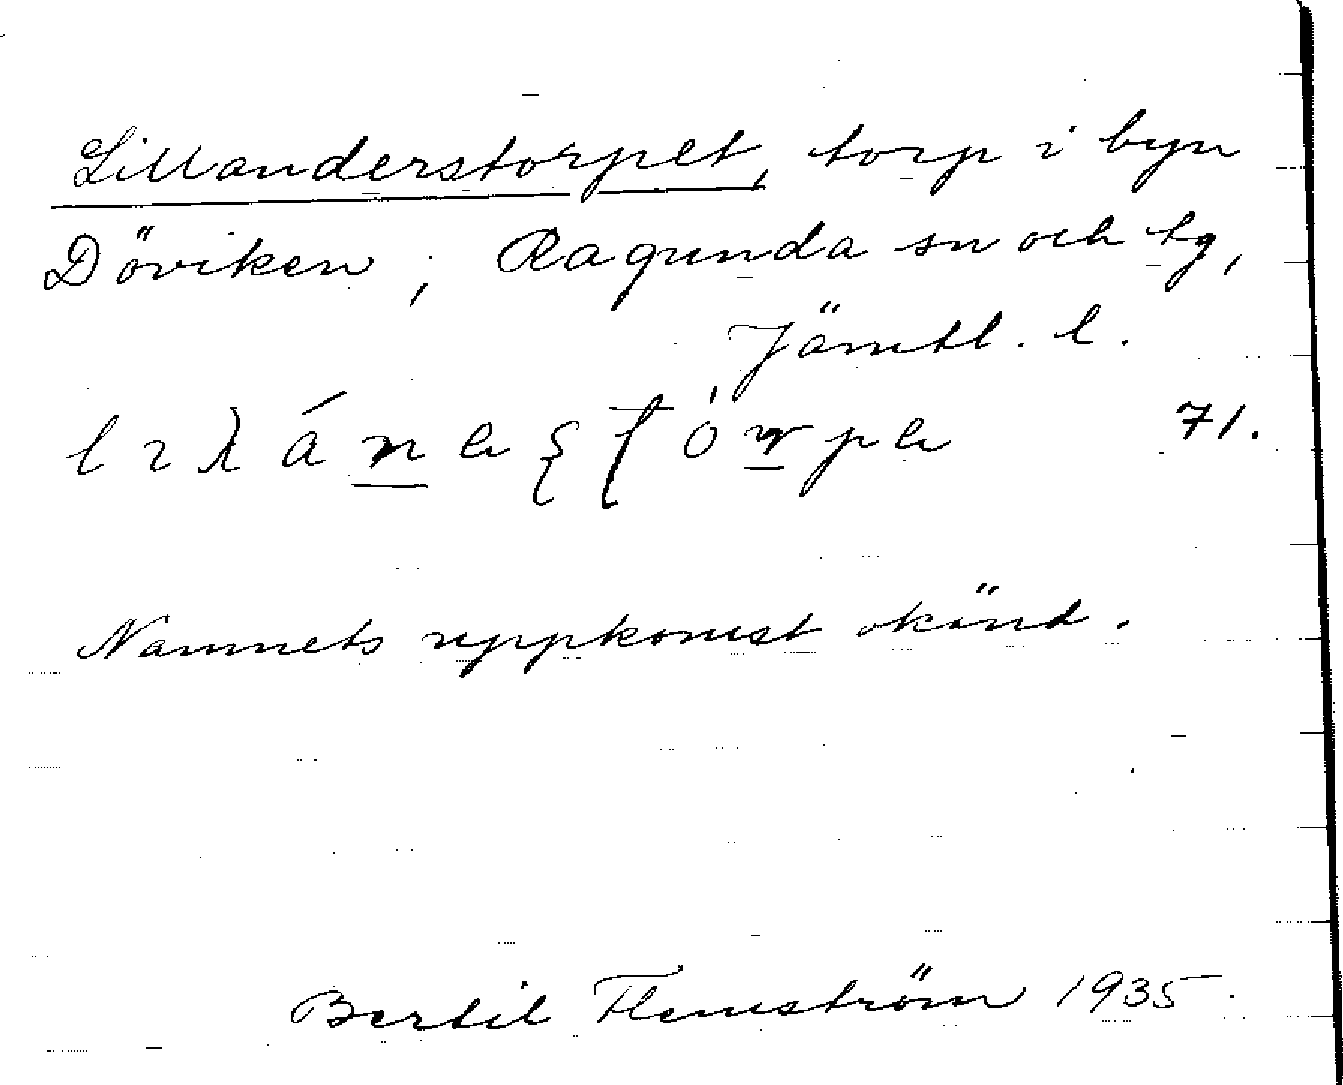 Lillanderstorpet, torp i byn
Döviken, Ragunda sn och tg,
Jämtl. l.
71.
Namnets uppkomst okänd.
Bertil Flemström 1935.